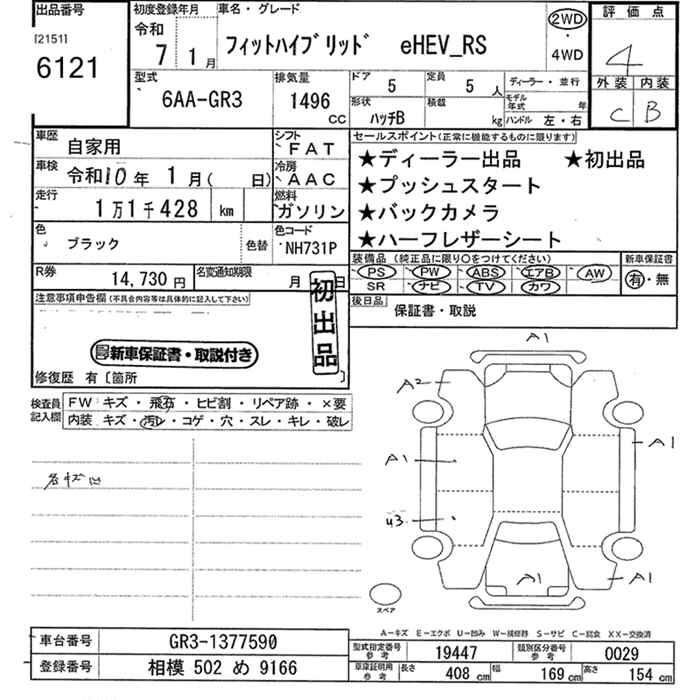 出品番号
[2151]
6121
初度登録年月
令和
7 1 月
車名・グレード
フィットハイブリッド eHEV_RS
2WD
・
4WD
評価点
4
外装 内装
C B
型式
6AA-GR3
排気量
1496
CC
ドア
5
定員
5 人
ディーラー・並行
形状
ハッチB
積載
kg
モデル年式
年
ハンドル 左・右
車歴
自家用
シフト
FAT
車検
令和10年 1月( 日)
冷房
AAC
走行
1万1千428 km
燃料
ガソリン
色
ブラック
色替
色コード
NH731P
R券
14,730 円
名変通知期限
月 日
セールスポイント(正常に機能するものに限ります)
★ディーラー出品 ★初出品
★プッシュスタート
★バックカメラ
★ハーフレザーシート
装備品 (純正品に限り〇をつけてください)
PS PW ABS エアB AW
SR ナビ TV カワ
新車保証書
有・無
後日品
保証書・取説
注意事項申告欄(不具合内容等は具体的に記入して下さい)
初出品
新車保証書・取説付き
修復歴 有〔箇所 〕
検査員
記入欄
FW キズ・飛石・ヒビ割・リペア跡・×要
内装 キズ・汚レ・コゲ・穴・スレ・キレ・破レ
A1
A2
A1
A1
U3
A1
A1
スペア
A－キズ E－エクボ U－凹み W－補修跡 S－サビ C－腐食 XX－交換済
車台番号
GR3-1377590
登録番号
相模 502 め 9166
型式指定番号
参考
19447
類別区分番号
参考
0029
車庫証明用
参考
長さ
408 cm
幅
169 cm
高さ
154 cm